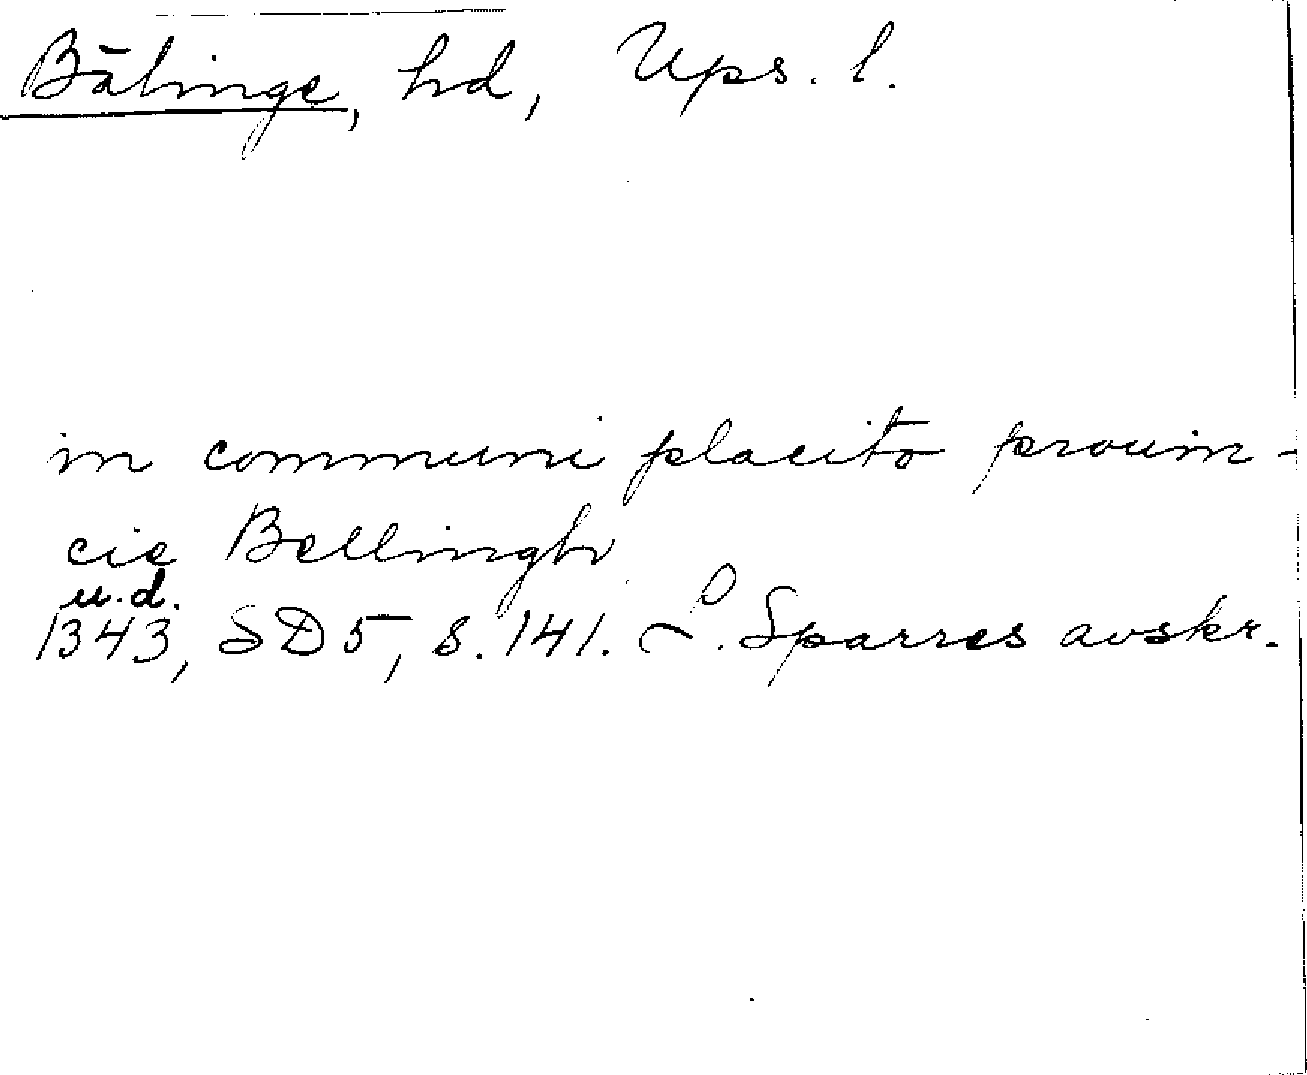 Bälinge, hd, Ups. l.
in communi placito prouin-
cie Bellingh
u.d.
1343, SD 5, s. 141. L. Sparres avskr.